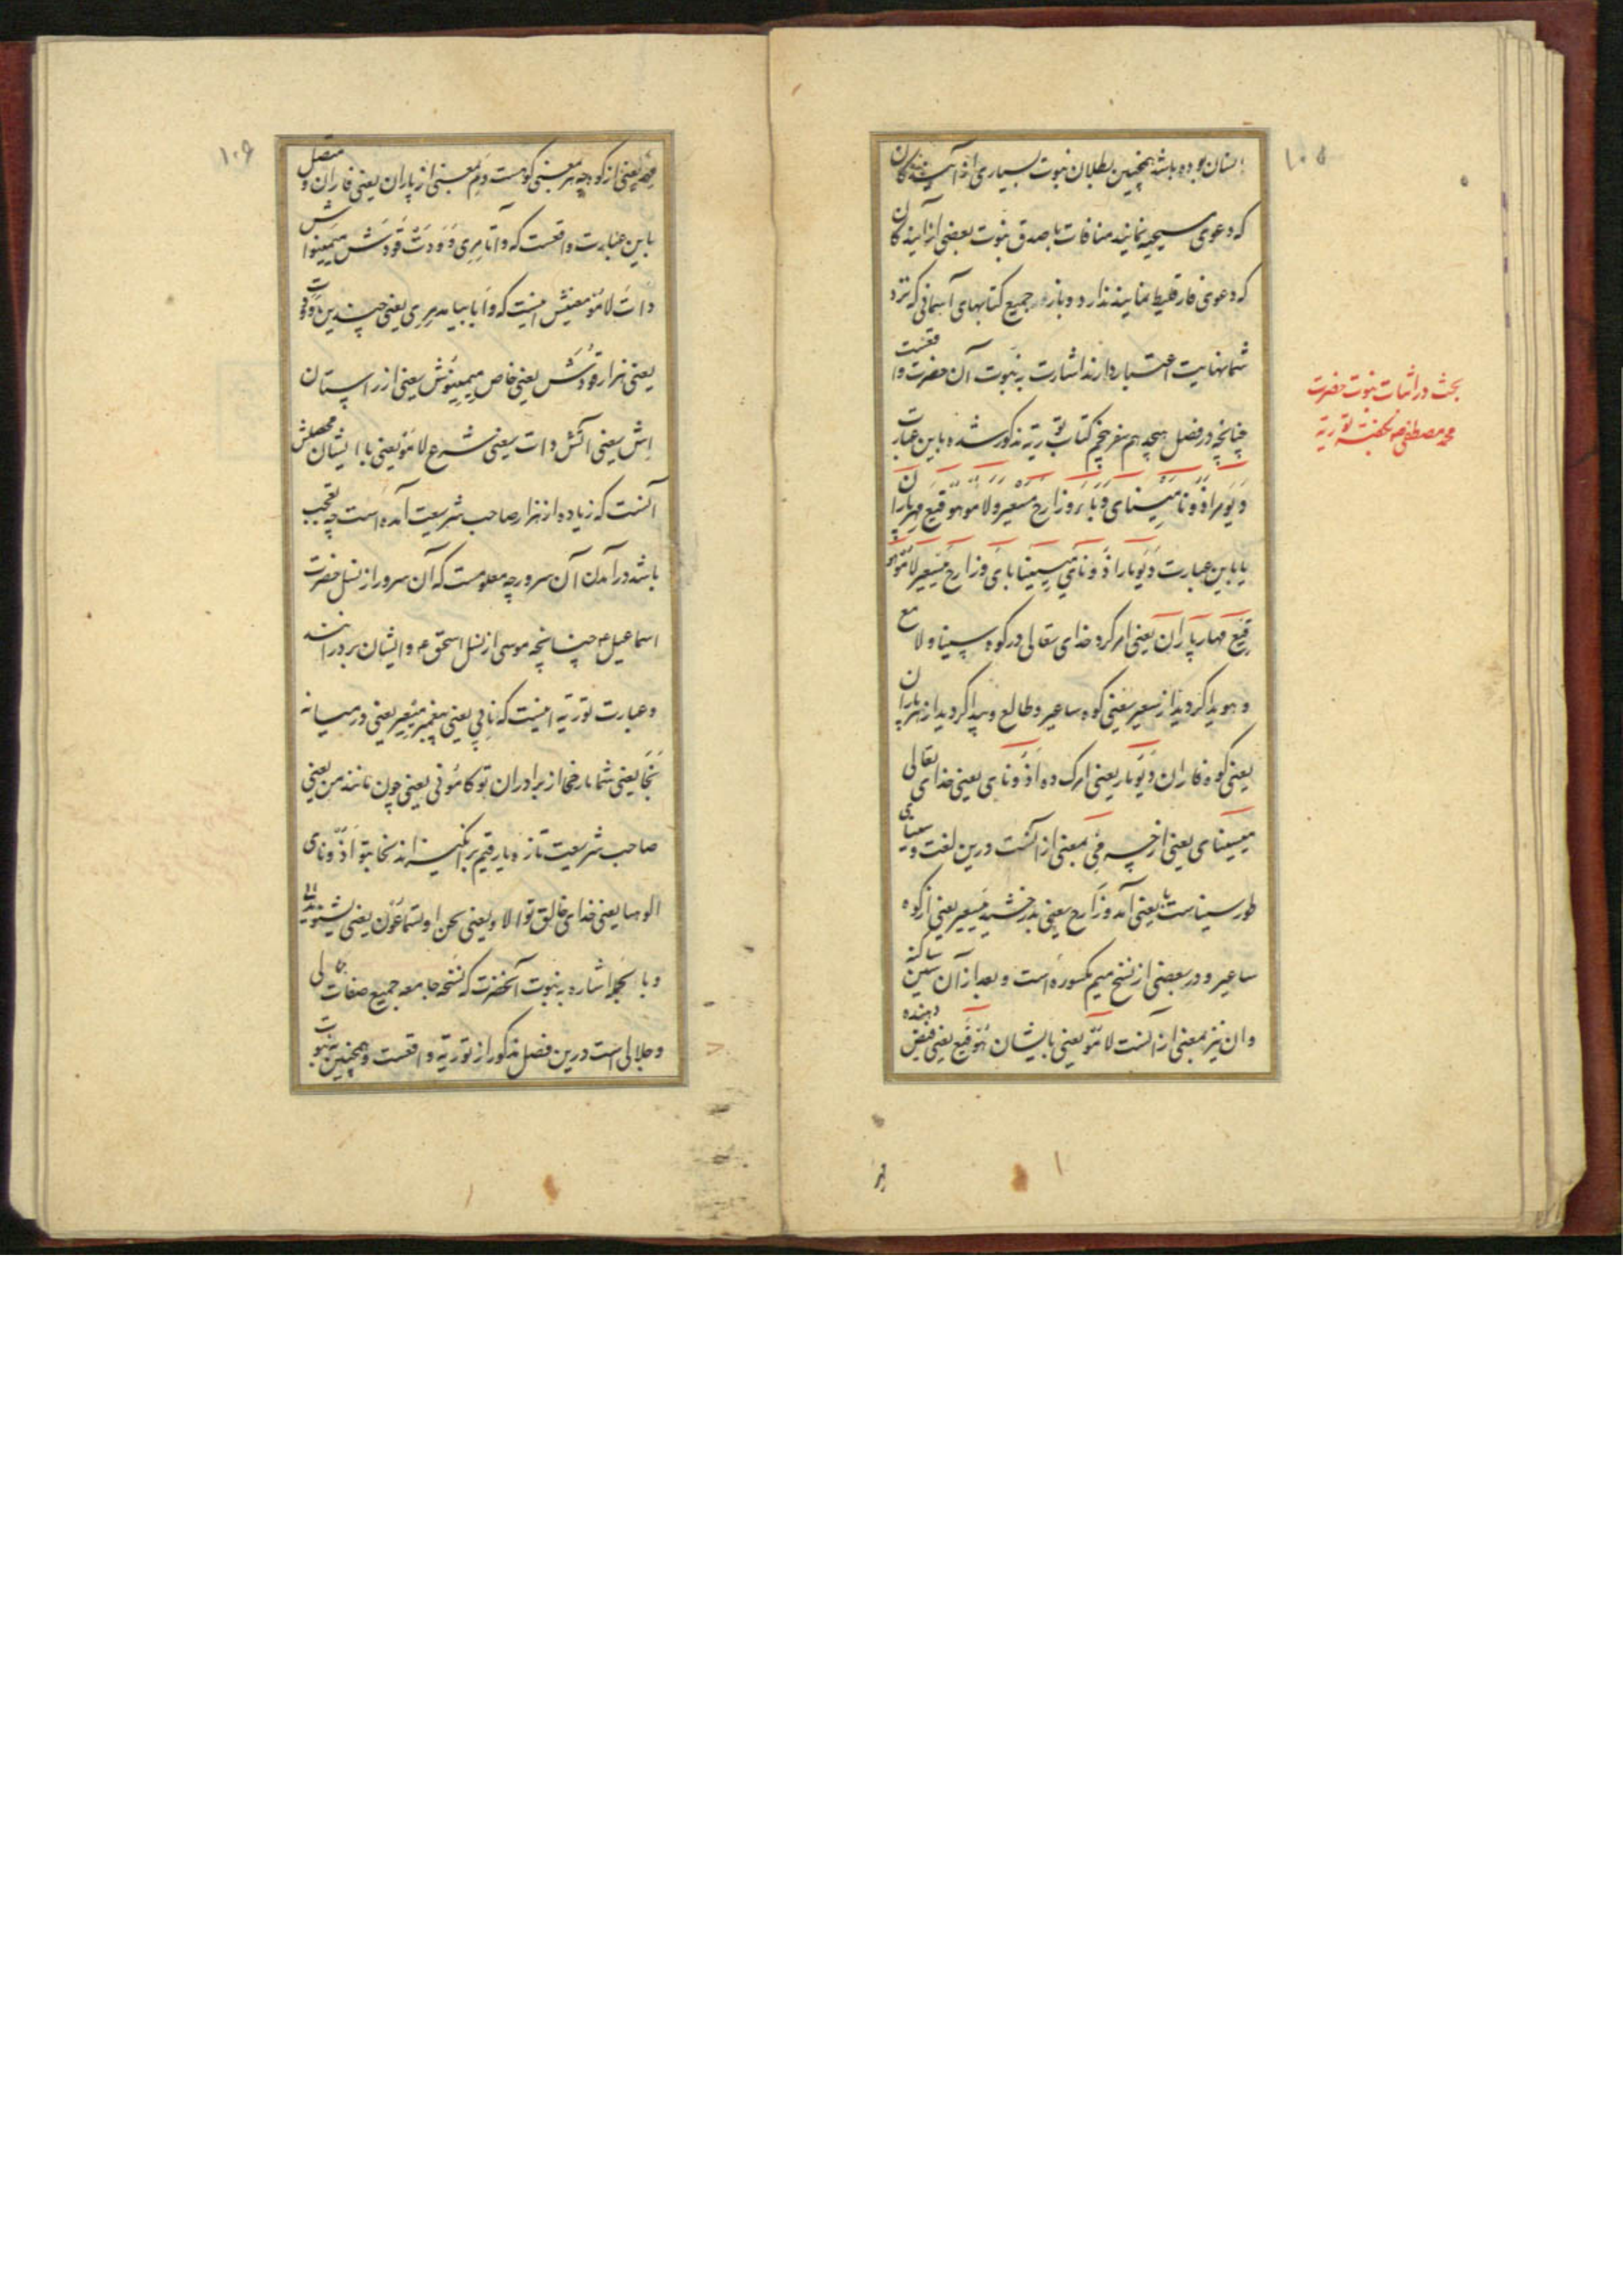 ۱۰۵
انسان بوده باشد همچنین بطلان نبوت بسیاری از آینده‌کان
که دعوی مسیحیه نمایند منافات با صدق نبوت بعضی از آینده‌کان
که دعوی فارقلیط نمایند ندارد و بازه در جمیع کتابهای آسمانی که نزد
شما نهایت اعتبار دارند اشارت به نبوت آن حضرت واقعست
چنانچه در فصل هیجدهم سفر پنجم کتاب توریة مذکور شده باین عبارت
بحث در اثبات نبوت حضرت
محمد مصطفی ص توریة
وَیَومِر اذونا مِسینای وزارح مسعیر ولامو هوقیع مهرپاران
یا باین عبارت وَیَومار اَذونای مِسینا بای وزارح مسعیر لامو هو
قیع مهارپاران یعنی امر کرد خدای تعالی در کوه سینا و لامع
و هویدا کردید از سعیر یعنی کوه ساعیر و طالع و پیدا کردید از هرپاران
یعنی کوه فاران وَیّومار یعنی امر کرده اَذونای یعنی خدای تعالی
میسینای یعنی از چه می بمعنی از آنست درین لغت و سینای
طور سیناست با یعنی آمد وزارح یعنی بدرخشید مِسعیر یعنی از کوه
ساعیر و در بعضی از نسخ میم مکسوره است و بعد از آن سین ساکنه
و ان نیز بمعنی از آنست لامّو یعنی بایشان هُوقیع یعنی فیض دهنده
۱۰۶
مهر یعنی از کوه چه هر بمعنی کوهست و مِ بمعنی از پاران یعنی فاران و متصل
باین عبارت واقعست که وآتا مِرِی وَوَدَتْ قودَش میمینو اش
دات لامو معنیش اینست که وَآیا بیاید مِرِی یعنی چندین ووَدت
یعنی هزار قودَش یعنی خاص میمینوش یعنی از راستان
اِش یعنی آتش دات یعنی شرع لامو یعنی با ایشان محصلش
آنست که زیاده از هزار صاحب شریعت آمده است چه تعجب
باشد در آمدن آن سرور چه معلومست که آن سرور از نسل حضرت
اسماعیل م چنانچه موسی از نسل اسحق م و ایشان برادرانند
و عبارت توریة اینست که نابی یعنی پیغمبر مِعیر یعنی در میانه
نخا یعنی شما از برادران تو کامُونی یعنی چون مانند من یعنی
صاحب شریعت تازه یا رقیم برانگیزاند نخا بتو اَذّونای
الوهیا یعنی خدای خالق تو الاو یعنی سخن او تشماعُون یعنی بشنوید
و با اشاره به نبوت آنحضرت که نسخه جامعه جمیع صفات جمالی
و جلالی است درین فصل مذکور از توریة واقعست و همچنین به نبوت